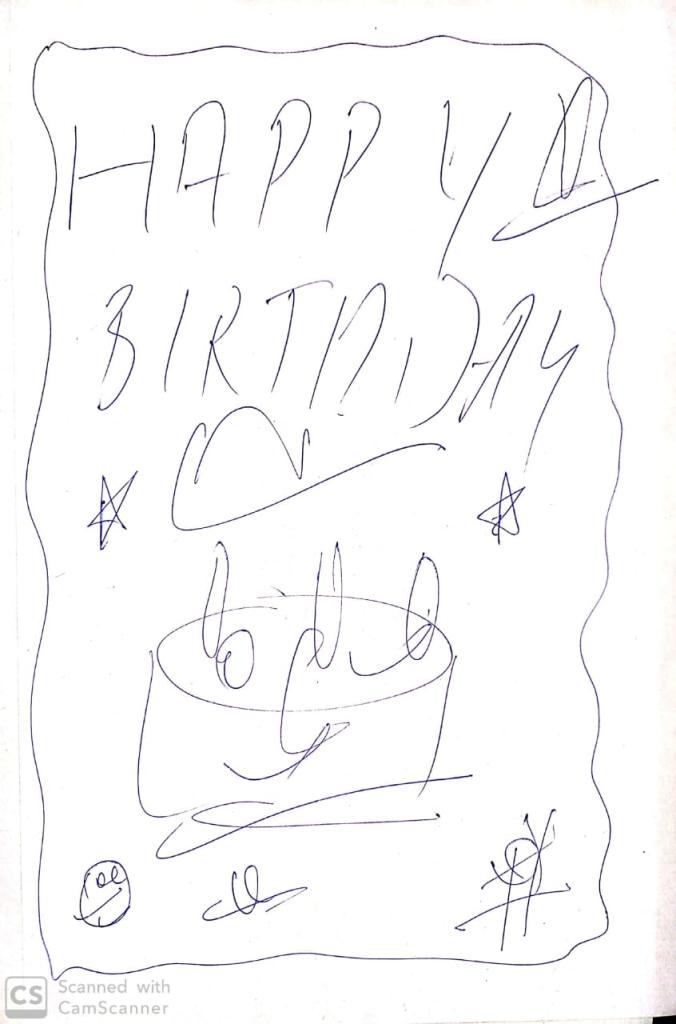 HAPPY
BIRTHDAY
CS Scanned with
CamScanner